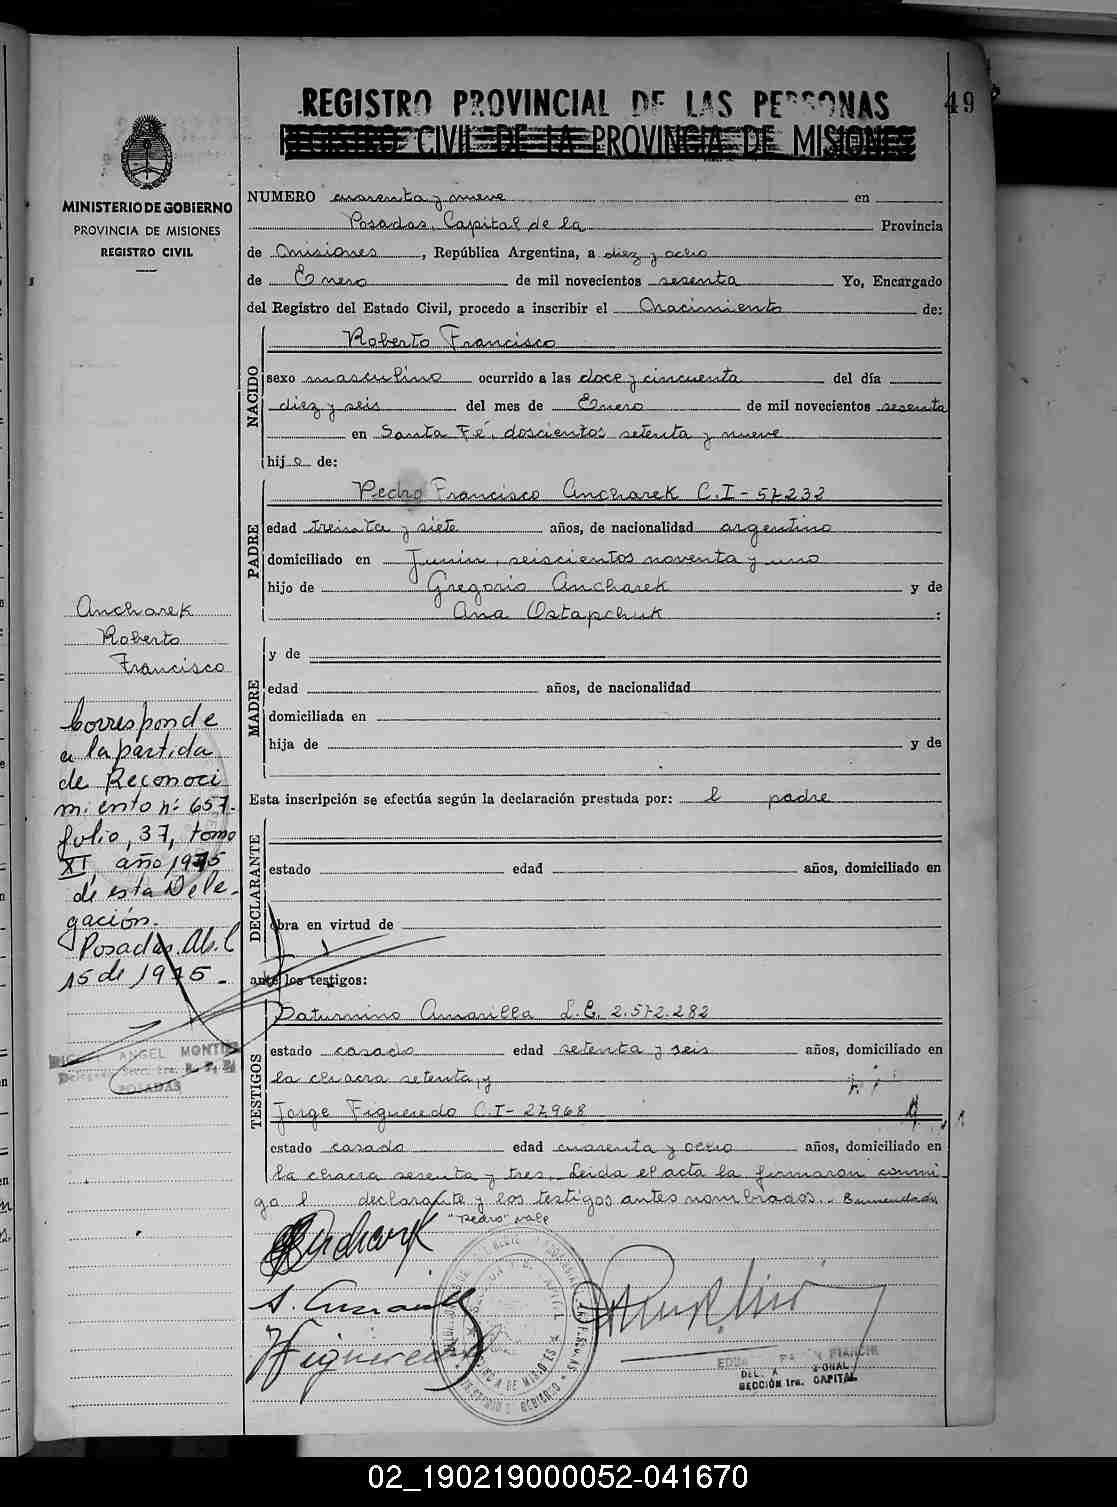 REGISTRO PROVINCIAL DE LAS PERSONAS
49
REGISTRO CIVIL DE LA PROVINCIA DE MISIONES
MINISTERIO DE GOBIERNO
PROVINCIA DE MISIONES
REGISTRO CIVIL
NUMERO cuarenta y nueve en
Posadas, Capital de la Provincia
de Misiones, República Argentina, a diez y ocho
de Enero de mil novecientos sesenta Yo, Encargado
del Registro del Estado Civil, procedo a inscribir el Nacimiento de:
NACIDO
Roberto Francisco
sexo masculino ocurrido a las doce y cincuenta del día
diez y seis del mes de Enero de mil novecientos sesenta
en Santa Fé, doscientos setenta y nueve
hijo de:
PADRE
Pedro Francisco Ancharek C.I-57232
edad treinta y siete años, de nacionalidad argentino
domiciliado en Junin, seiscientos noventa y uno
hijo de Gregorio Ancharek y de
Ana Ostapchuk :
MADRE
y de
edad años, de nacionalidad
domiciliada en
hija de y de
Esta inscripción se efectúa según la declaración prestada por: el padre
DECLARANTE
estado edad años, domiciliado en
obra en virtud de
ante los testigos:
TESTIGOS
Saturnino Amarilla L.E. 2.572.282
estado casado edad setenta y seis años, domiciliado en
la chacra setenta, y
Jorge Figueredo C.I-27968
estado casado edad cuarenta y ocho años, domiciliado en
la chacra sesenta y tres. Leida el acta la firmaron conmi-
go el declarante y los testigos antes nombrados. Enmendado
"Pedro" vale
Ancharek
Roberto
Francisco
Corresponde
a la partida
de Reconoci
miento nº 657-
folio, 37, tomo
XI, año 1975
de esta Dele-
gación.
Posadas. Abril
15 de 1975-
ANGEL
POSADAS
S. Amarilla
Figueredo
SECCIÓN 1ra. CAPITAL
02_190219000052-041670